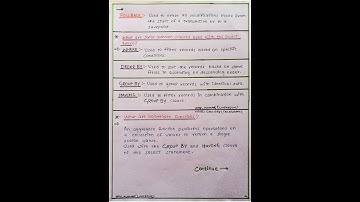 ROLLBACK:- Used to undo all modifications made from
the start of a transaction or to a
savepoint.
What are some common clauses used with the Select
Query?
WHERE:- Used to filter records based on specific
conditions.
ORDER BY:- Used to sort the records based on some
fields in ascending or descending order.
GROUP BY:- Used to group records with identical data.
HAVING:- Used to filter records in combination with
GROUP BY clause.
What are Aggregate Functions?
An aggregate function performs operations on
a collection of values to return a single
scalar value.
Used with the GROUP BY and HAVING clause
of the select statement.
Continue →